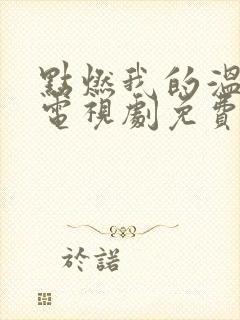 點燃我的溫
電視劇免費
於諾